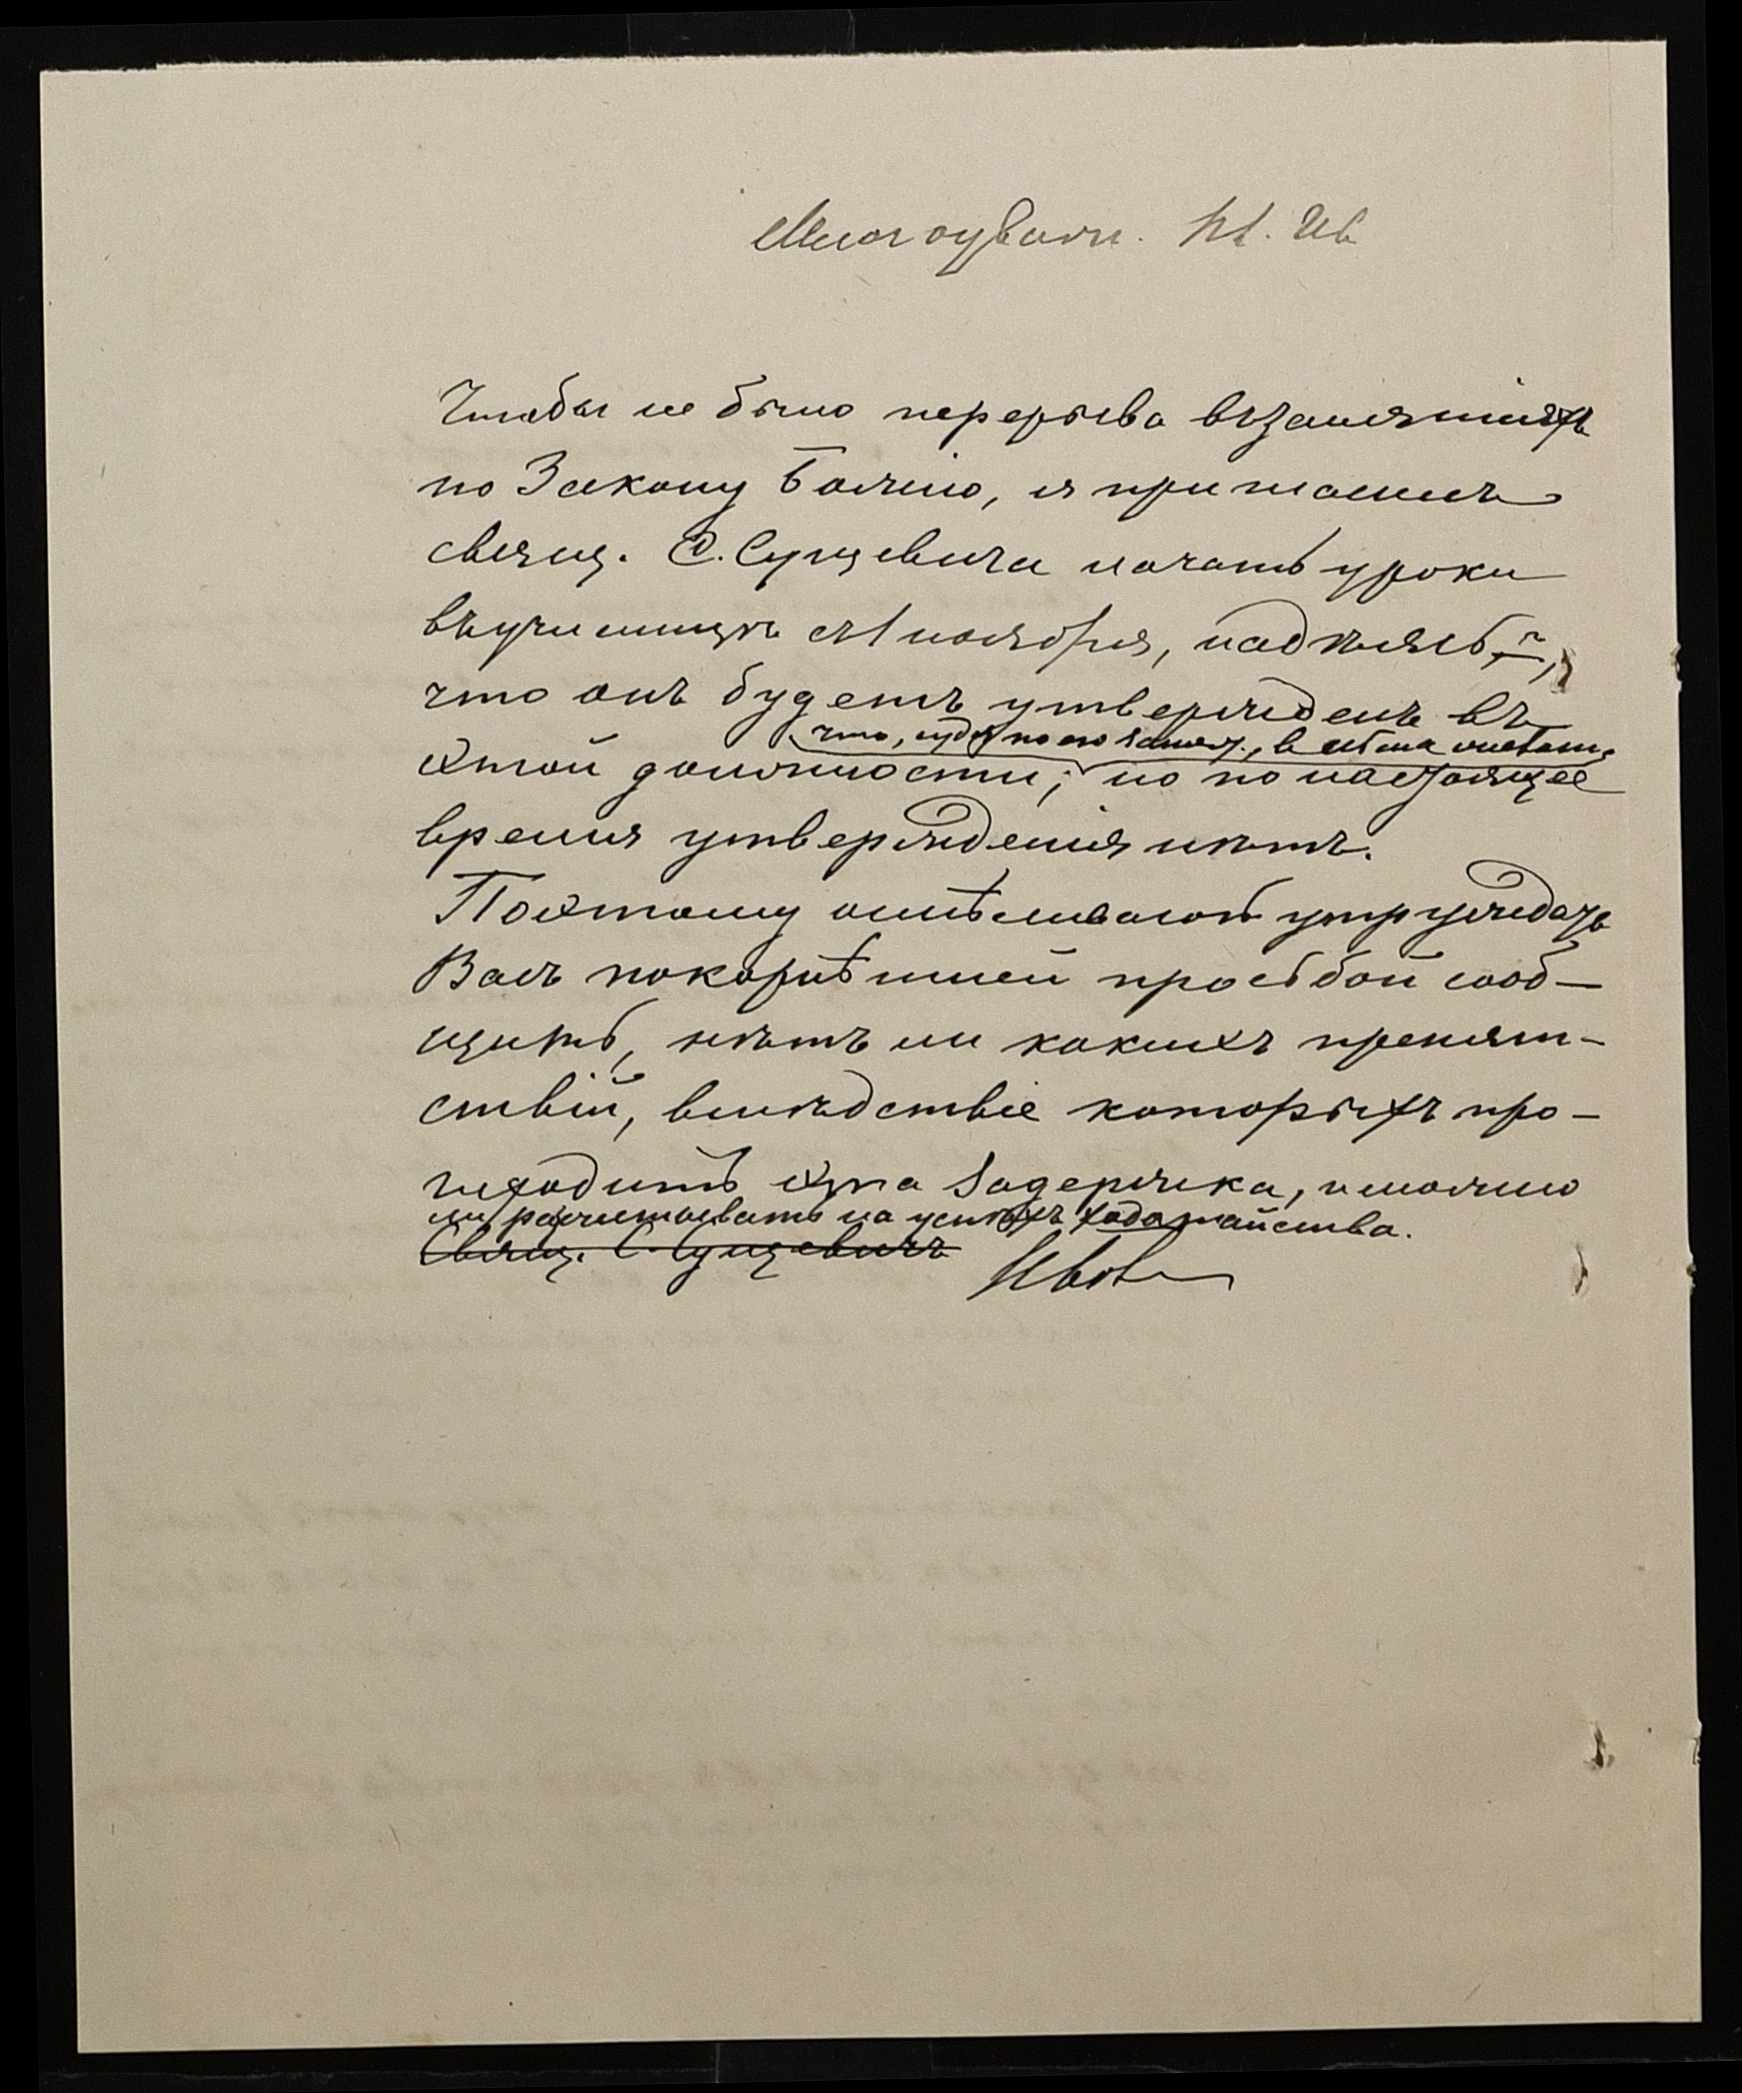 Многоуваж. Ив
Чтобы не было перерыва въ занятіяхъ
по Закону Божію, я пригласилъ
свящ. С. Сущевича начать уроки
въ училищѣ съ 1 ноября, надѣясь,
что онъ будетъ утвержденъ въ
что, судя по его
этой должности; но по настоящее
время утвержденія нѣтъ.
Поэтому осмѣливаюсь утруждать
Васъ покорнѣйшей просьбой сооб-
щить, нѣтъ ли какихъ препят-
ствій, вслѣдствіе которыхъ про-
исходитъ эта задержка, и можно
ли разсчитывать на успѣхъ ходатайства.
Свящ. С. Сущевичъ